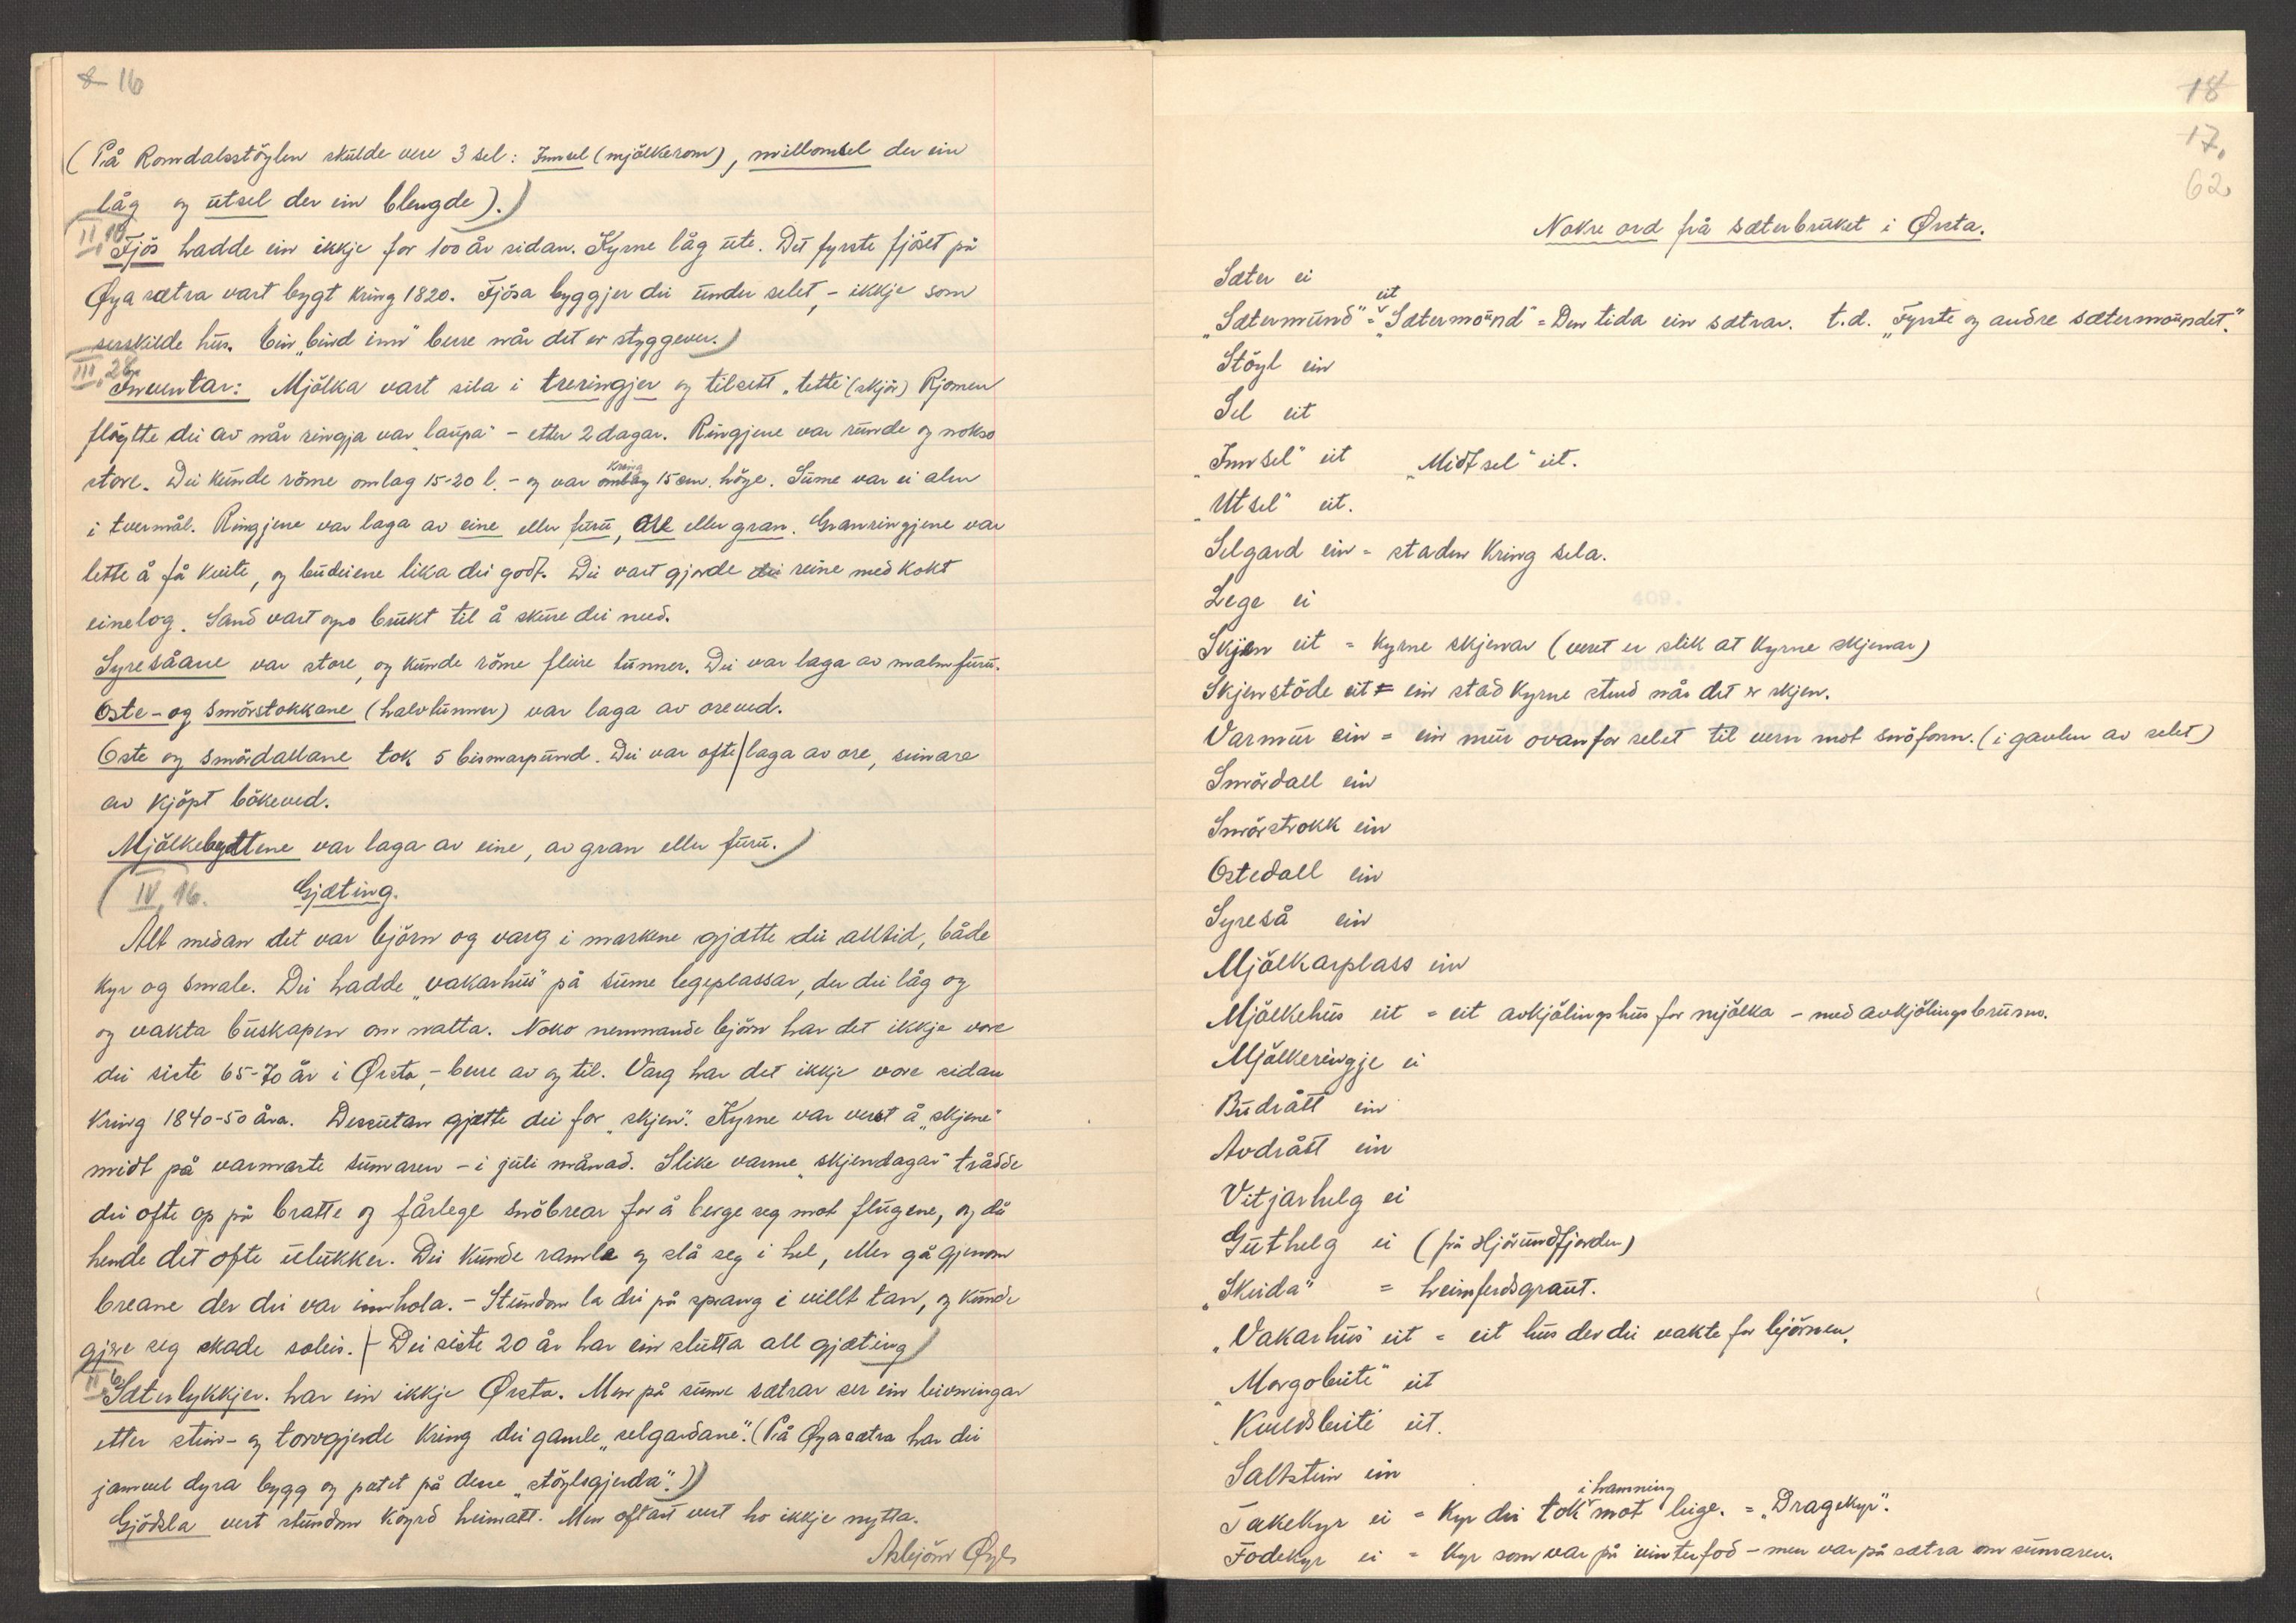 8 16
(På Romdalsstöylen skulde vere 3 sel: Innsel (mjölkerom), millomsel der ein
låg og utsel der ein blengde).)
II, 10
Fjös hadde ein ikkje for 100 år sidan. Kyrne låg ute. Det fyrste fjöset på
Øya sætra vart bygt kring 1820. Fjösa byggjer dei under selet, - ikkje som
serskilde hus. Ein "bind inn" berre når det er styggever.)
III, 28
Inventar: Mjölka vart sila i treringjer og tilsett "tette" (skjör) Rjomen
flöytte dei av når ringja var "laupa" - etter 2 dagar. Ringjene var runde og nokso
store. Dei kunde röme omlag 15-20 l. - og var omlag kring 15 cm. höge. Sume var ei alen
i tvermål. Ringjene var laga av eine eller furu, ore eller gran. Granringjene var
lette å få kvite, og budeiene lika dei godt. Dei vart gjorde dei reine med kokt
einelog. Sand vart ogso brukt til å skure dei med.
Syresåane var store, og kunde röme fleire tunner. Dei var laga av malmfuru.
Oste- og smörstokkane (halvtunner) var laga av oreved.
Oste og smördallane tok 5 bismarpund. Dei var ofte laga av ore, seinare
av kjöpt bökeved.
Mjölkebyttene var laga av eine, av gran eller furu.)
(IV, 16. Gjæting.
Alt medan det var björn og varg i markene gjætte dei alltid, både
kyr og smale. Dei hadde "vakarhus" på sume legeplassar, der dei låg og
og vakta buskapen om natta. Noko nemnande björn har det ikkje vore
dei siste 65-70 år i Ørsta, - berre av og til. Varg har det ikkje vore sidan
kring 1840-50 åra. Dessutan gjætte dei for "skjen". Kyrne var verst å "skjene"
midt på varmaste sumaren - i juli månad. Slike varme "skjendagar" trådde
dei ofte op på bratte og fårlege snöbrear for å berge seg mot flugene, og då
hende det ofte ulukker. Dei kunde ramle og slå seg i hel, eller gå gjenom
breane der dei var innhola. - Stundom la dei på sprang i villt tan, og kunde
gjere seg skade soleis. - Dei siste 20 år har ein slutta all gjæting)
II, 6
Sæterlykkjer. har ein ikkje Ørsta. Men på sume sætrar ser ein leivningar
etter stein- og torvgjerde kring dei gamle "selgardane". (På Øyasætra har dei
jamvel dyra bygg og potet på desse "stöylsgjerda".))
Gjödsla vert stundom köyrd heimatt. Men oftast vert ho ikkje nytta.
Asbjörn Øye
18
17.
62.
Nokre ord frå sæterbruket i Ørsta.
Sæter ei
"Sætermund" = eit "Sætermoünd" = Den tida ein sætrar. t.d. "Fyrste og andre sætermoündet."
Stöyl ein
Sel eit
"Innsel" eit "Midtsel" eit.
"Utsel" eit.
Selgard ein = staden kring sela.
Lege ei
Skjen eit = kyrne skjenar (veret er slik at kyrne skjenar)
Skjenstöde eit = ein stad kyrne stend når det er skjen.
Varmur ein = ein mur ovanfor selet til vern mot snöfonn. (i gavlen av selet)
Smördall ein
Smörstrokk ein
Ostedall ein
Syreså ein
Mjölkarplass ein
Mjölkehus eit = eit avkjölingshus for mjölka - med avkjölingsbrunn.
Mjölkeringje ei
Budrått ein
Avdrått ein
Vitjarhelg ei
Guthelg ei (frå Hjörundfjorden)
"Skeida" = heimferdsgraut.
"Vakarhus" eit = eit hus der dei vakte for björnen.
"Morgobeite" eit
"Kveldsbeite" eit.
Saltstein ein
Takekyr ei = kyr dei tok i hamning mot leige. = "Dragekyr".
Fodekyr ei = kyr som var på vinterfod - men var på sætra om sumaren.